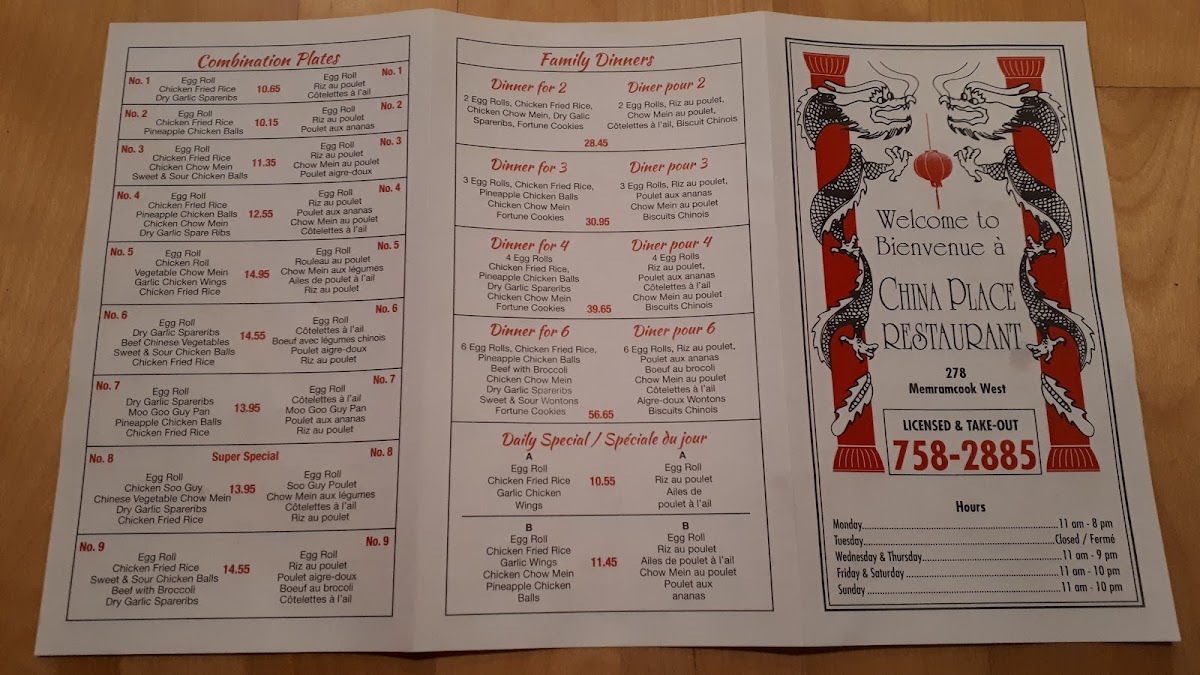 Combination Plates
No. 1
Egg Roll
Chicken Fried Rice
Dry Garlic Spareribs
10.65
Egg Roll
Riz au poulet
Côtelettes à l'ail
No. 1
No. 2
Egg Roll
Chicken Fried Rice
Pineapple Chicken Balls
10.15
Egg Roll
Riz au poulet
Poulet aux ananas
No. 2
No. 3
Egg Roll
Chicken Fried Rice
Chicken Chow Mein
Sweet & Sour Chicken Balls
11.35
Egg Roll
Riz au poulet
Chow Mein au poulet
Poulet aigre-doux
No. 3
No. 4
Egg Roll
Chicken Fried Rice
Pineapple Chicken Balls
Chicken Chow Mein
Dry Garlic Spare Ribs
12.55
Egg Roll
Riz au poulet
Poulet aux ananas
Chow Mein au poulet
Côtelettes à l'ail
No. 4
No. 5
Egg Roll
Chicken Roll
Vegetable Chow Mein
Garlic Chicken Wings
Chicken Fried Rice
14.95
Egg Roll
Rouleau au poulet
Chow Mein aux légumes
Ailes de poulet à l'ail
Riz au poulet
No. 5
No. 6
Egg Roll
Dry Garlic Spareribs
Beef Chinese Vegetables
Sweet & Sour Chicken Balls
Chicken Fried Rice
14.55
Egg Roll
Côtelettes à l'ail
Boeuf avec légumes chinois
Poulet aigre-doux
Riz au poulet
No. 6
No. 7
Egg Roll
Dry Garlic Spareribs
Moo Goo Guy Pan
Pineapple Chicken Balls
Chicken Fried Rice
13.95
Egg Roll
Côtelettes à l'ail
Moo Goo Guy Pan
Poulet aux ananas
Riz au poulet
No. 7
No. 8
Super Special
Egg Roll
Chicken Soo Guy
Chinese Vegetable Chow Mein
Dry Garlic Spareribs
Chicken Fried Rice
13.95
Egg Roll
Soo Guy Poulet
Chow Mein aux légumes
Côtelettes à l'ail
Riz au poulet
No. 8
No. 9
Egg Roll
Chicken Fried Rice
Sweet & Sour Chicken Balls
Beef with Broccoli
Dry Garlic Spareribs
14.55
Egg Roll
Riz au poulet
Poulet aigre-doux
Boeuf au brocoli
Côtelettes à l'ail
No. 9
Family Dinners
Dinner for 2
2 Egg Rolls, Chicken Fried Rice,
Chicken Chow Mein, Dry Galic
Spareribs, Fortune Cookies
Diner pour 2
2 Egg Rolls, Riz au poulet,
Chow Mein au poulet,
Côtelettes à l'ail, Biscuit Chinois
28.45
Dinner for 3
3 Egg Rolls, Chicken Fried Rice,
Pineapple Chicken Balls
Chicken Chow Mein
Fortune Cookies
30.95
Diner pour 3
3 Egg Rolls, Riz au poulet,
Poulet aux ananas
Chow Mein au poulet
Biscuits Chinois
Dinner for 4
4 Egg Rolls
Chicken Fried Rice,
Pineapple Chicken Balls
Dry Garlic Spareribs
Chicken Chow Mein
Fortune Cookies
39.65
Diner pour 4
4 Egg Rolls
Riz au poulet,
Poulet aux ananas
Côtelettes à l'ail
Chow Mein au poulet
Biscuits Chinois
Dinner for 6
6 Egg Rolls, Chicken Fried Rice,
Pineapple Chicken Balls
Beef with Broccoli
Chicken Chow Mein
Dry Garlic Spareribs
Sweet & Sour Wontons
Fortune Cookies
56.65
Diner pour 6
6 Egg Rolls, Riz au poulet
Poulet aux ananas
Boeuf au brocoli
Chow Mein au poulet
Côtelettes à l'ail
Aigre-doux Wontons
Biscuits Chinois
Daily Special / Spéciale du jour
A
Egg Roll
Chicken Fried Rice
Garlic Chicken
Wings
10.55
A
Egg Roll
Riz au poulet
Ailes de
poulet à l'ail
B
Egg Roll
Chicken Fried Rice
Garlic Wings
Chicken Chow Mein
Pineapple Chicken
Balls
11.45
B
Egg Roll
Riz au poulet
Ailes de poulet à l'ail
Chow Mein au poulet
Poulet aux
ananas
Welcome to
Bienvenue à
CHINA PLACE
RESTAURANT
278
Memramcook West
LICENSED & TAKE-OUT
758-2885
Hours
Monday 11 am - 8 pm
Tuesday Closed / Fermé
Wednesday & Thursday 11 am - 9 pm
Friday & Saturday 11 am - 10 pm
Sunday 11 am - 10 pm